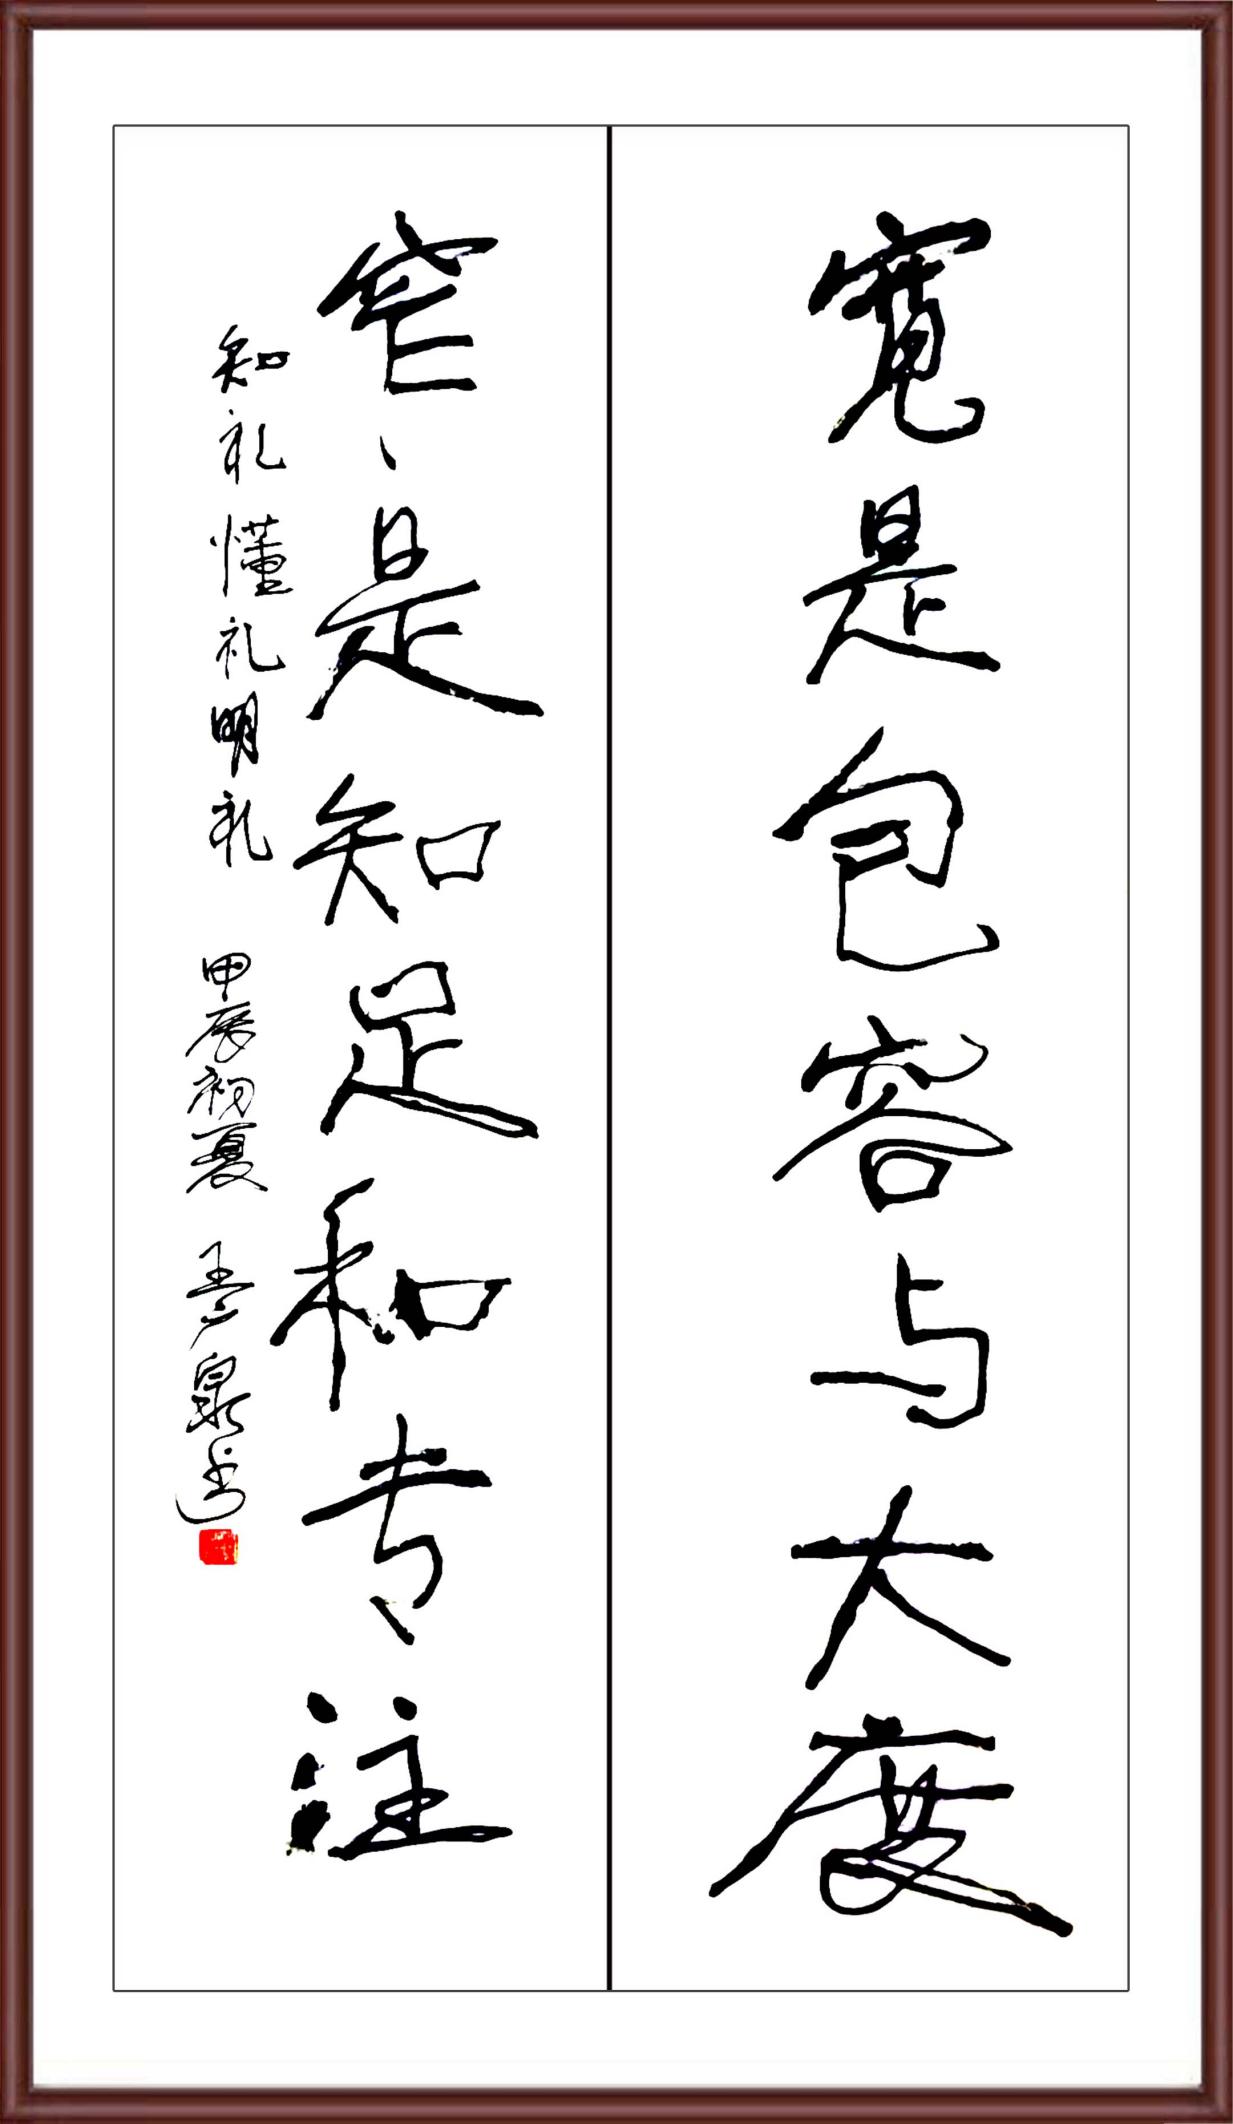 寬是包容与大度
窄是知足和专注
知礼懂礼明礼 甲辰初夏 泉书